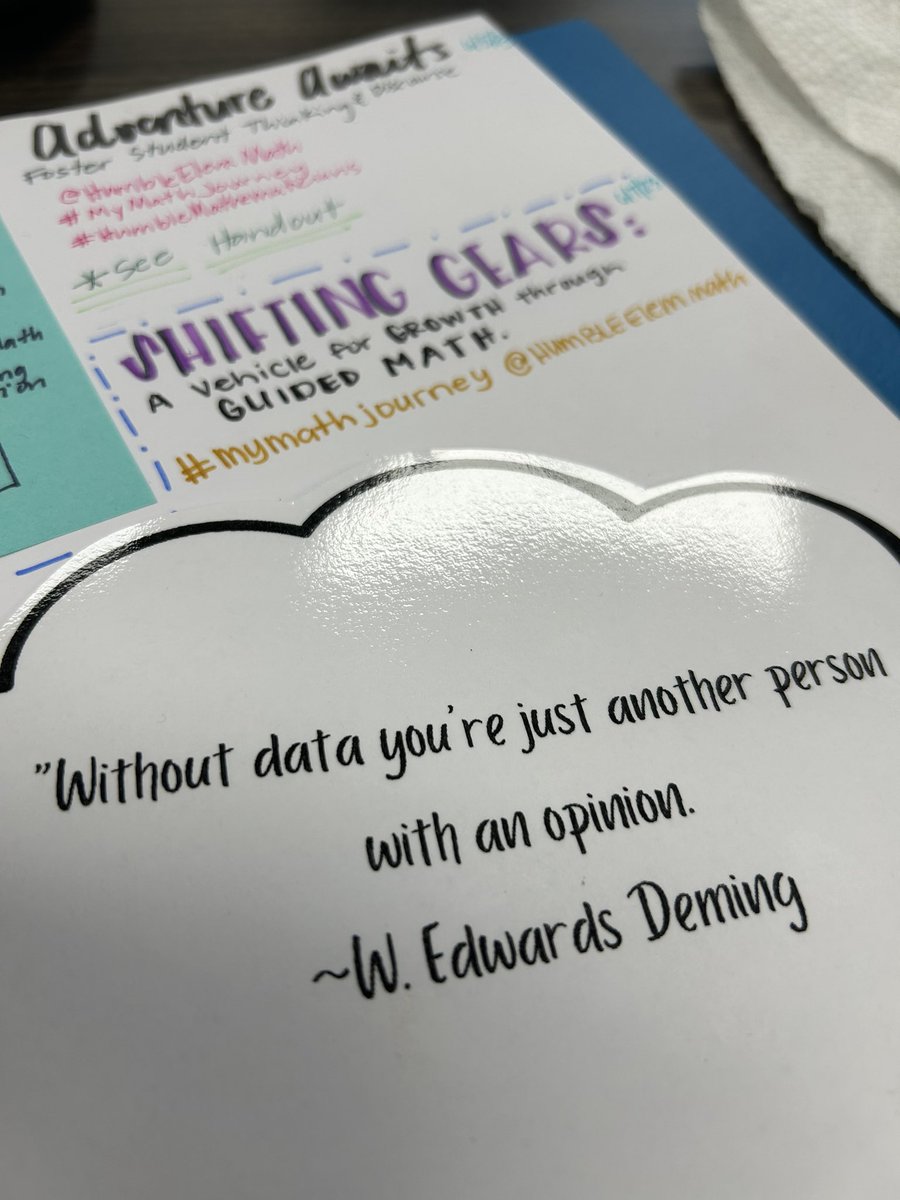 Adventure Awaits
Foster Student Thinking & Discourse
@HumbleElemMath
#MyMathJourney
#HumbleMathematicians
*See Handout
SHIFTING GEARS:
A Vehicle for GROWTH through
GUIDED MATH.
#mymathjourney @HumBLEElemmath
"Without data you're just another person
with an opinion.
~W. Edwards Deming